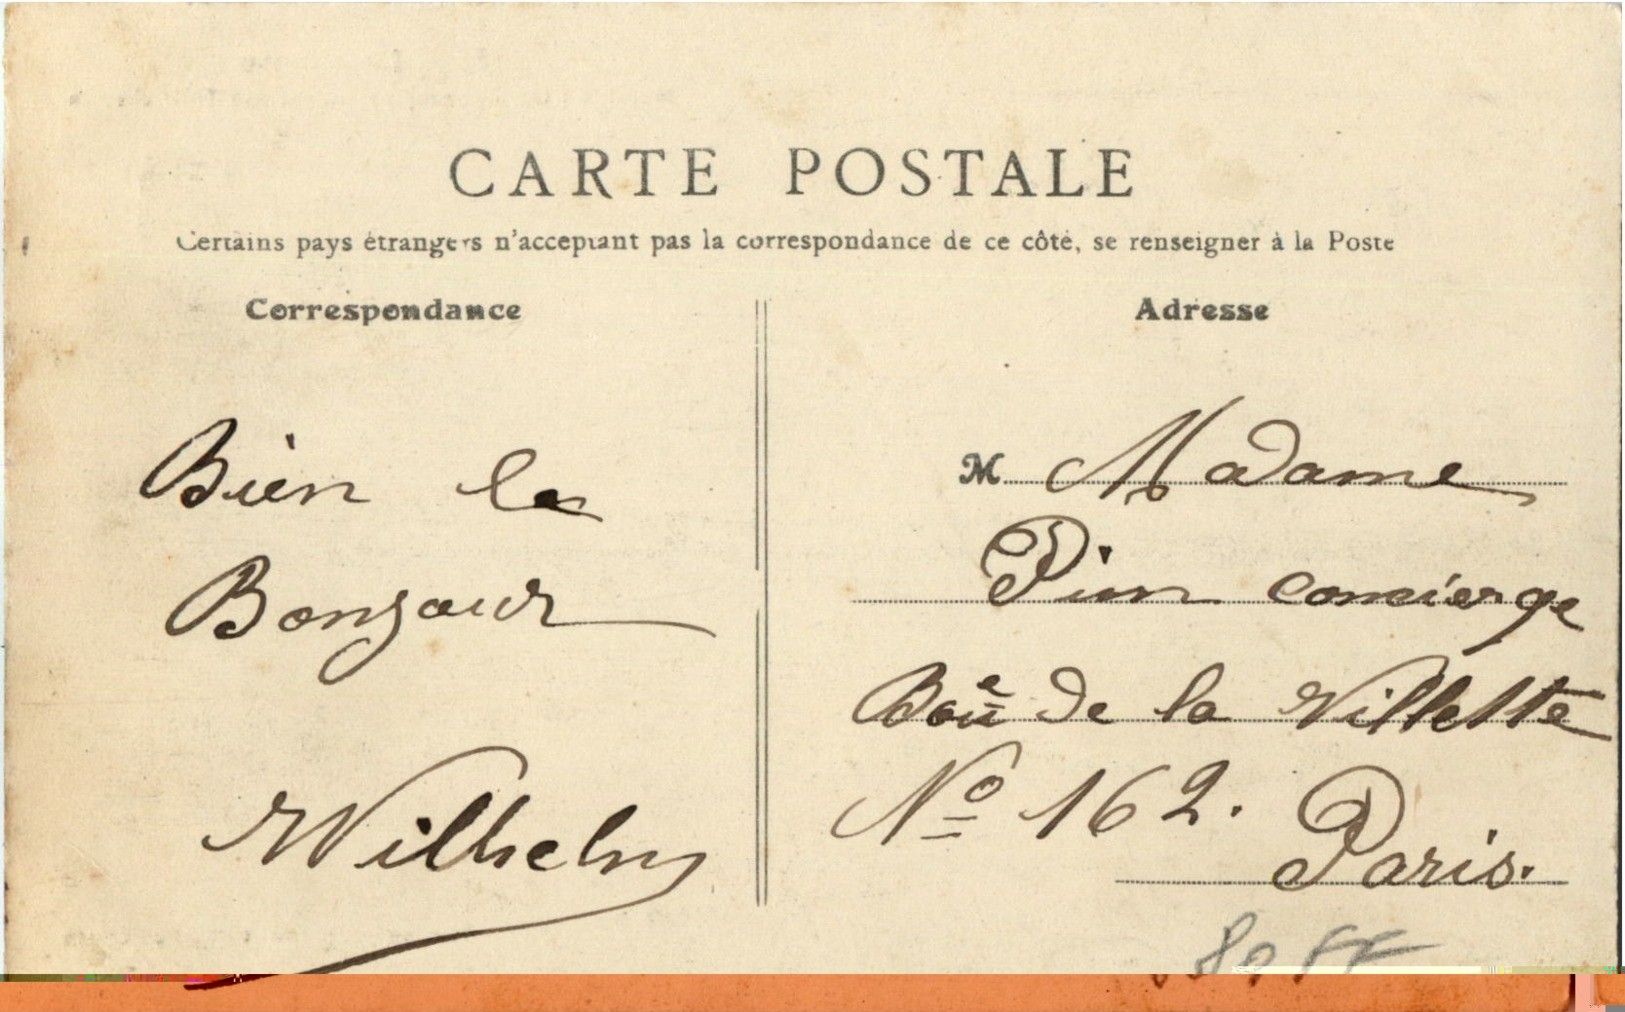 CARTE POSTALE
Certains pays étrangers n'acceptant pas la correspondance de ce côté, se renseigner à la Poste
Correspondance
Bien le
Bonjour
Wilhelm
Adresse
M Madame
concierge
Boûe de la Villette
Nº 162.
Paris.